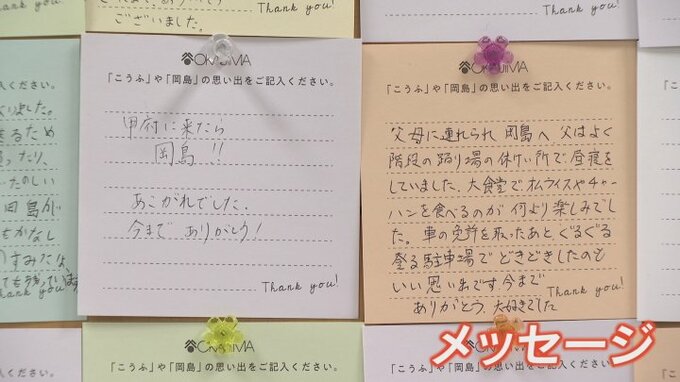 ございました。
Thank you!
Thank you!
OKAJIMA
「こうふ」や「岡島」の思い出をご記入ください。
甲府に来たら
岡島!!
あこがれでした。
今まで ありがとう!
Thank you!
OKAJIMA
「こうふ」や「岡島」の思い出をご記入ください。
父母に連れられ 岡島へ。父はよく
階段の踊り場の休けい所で、昼寝を
していました。大食堂でオムライスやチャー
ハンを食べるのが 何より楽しみでし
た。車の免許を取ったあと、ぐるぐる
登る駐車場で どきどきしたのも
いい思い出です。今まで
ありがとう。大好きでした
Thank you!
ください。
いました。
るため
ったり、
たのしい
岡島が
もかなし
すみだな。
Thank you!
OKAJIMA
「こうふ」や「岡島」の思い出をご記入ください。
OKAJIMA
「こうふ」や「岡島」の思い出をご記入ください。
メッセージ